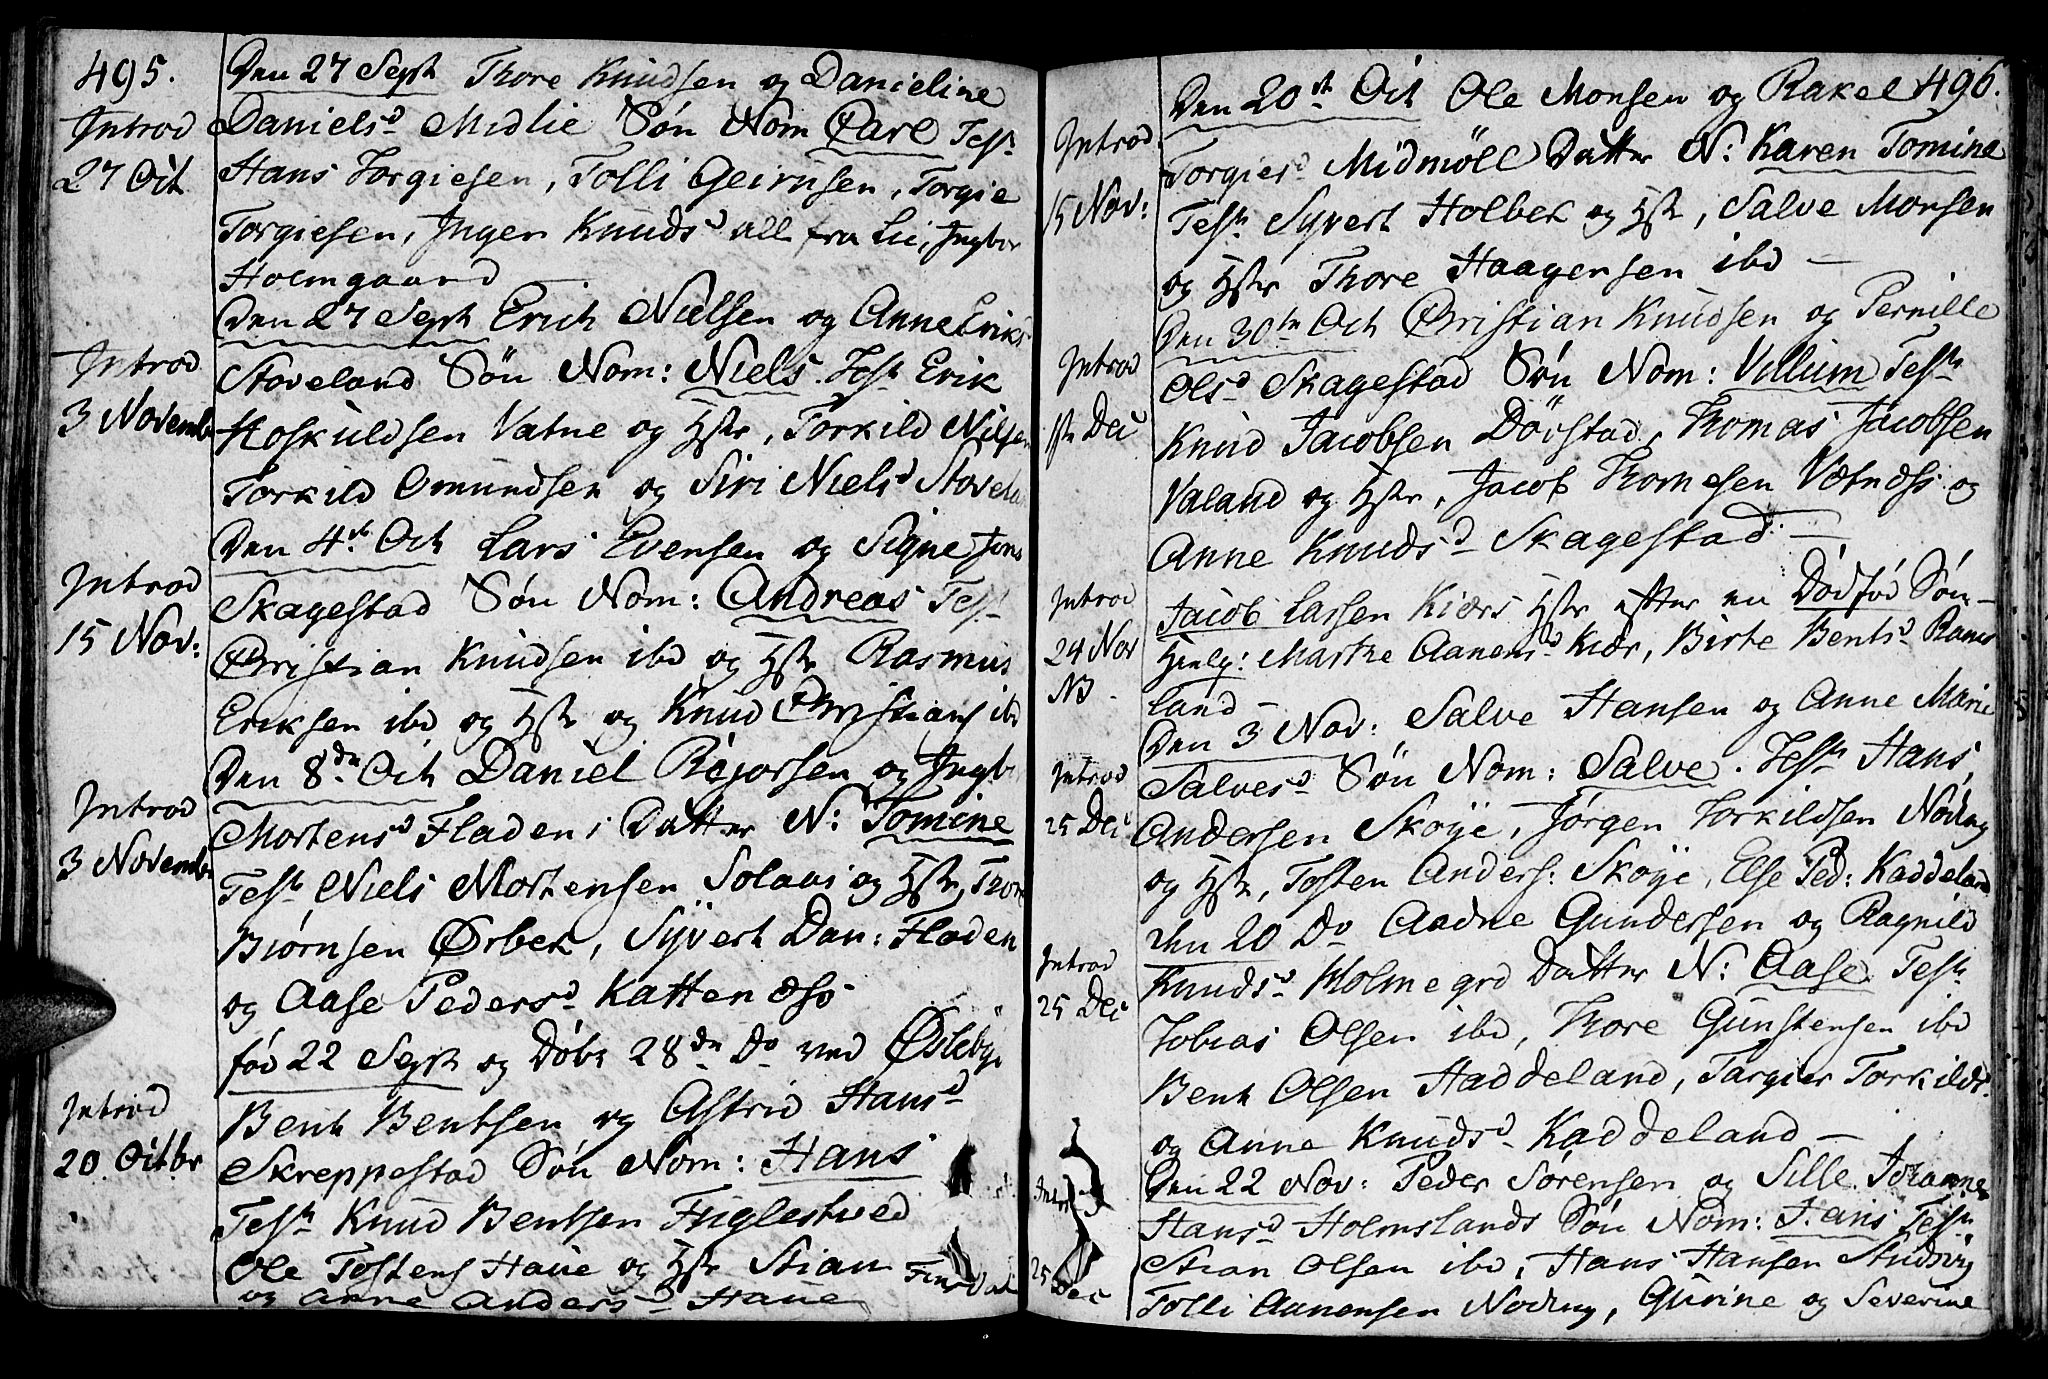 495.
Introd
27 Oct
Den 27 Sept Thore Knudsen og Danieline
Danielsd Midlie Søn Nom Carl Test
Hans Torgiesen, Tolli Geirusen, Torgie
Torgiesen, Inger Knudsd all fra Lie, Ingbor
Holmgaard
Introd
3 Novemb
Den 27 Sept Erich Nielsen og Anne Eriks
Stoveland Søn Nom: Niels. Test Erik
Hoskuldsen Vatne og Hstr, Torkild Nilsen
Torkild Omundsen og Siri Nielsd Stovela
Introd
15 Nov:
Den 4de Oct Lars Evensen og Signe Jens
Skagestad Søn Nom: Andreas Test
Christian Knudsen ibd og Hstr Rasmus
Eriksen ibd og Hstr og Knud Christians ibd
Introd
3 Novemb
Den 8de Oct Daniel Rejorsen og Ingb
Mortensd Fladen; Datter N: Tomine
Test Niels Mortensen Solaas og Hstr, Thore
Biørnsen Ørbek, Syvert Dan: Fladen
og Aase Pedersd Kattenæss
Introd
20. Octbr
fød 22 Sept og Døbt 28de Do ved Øsleby
Bent Bentsen og Astrid Hansd
Skreppestad Søn Nom: Hans
Test Knud Bentsen Fuglestved
Ole Tostens Haue og Hstr Stian
og Anne Andersd Haue
496.
Introd
15 Nov:
Den 20de Oct Ole Monsen og Rakel
Torgiersd Midmøll Datter N: Karen Tomine
Test Syvert Holbek og Hstr, Salve Monsen
og Hstr Thore Haagensen ibd —
Introd
1ste Dec
Den 30te Oct Christian Knudsen og Pernille
Olsd Skagestad Søn Nom: Villum Test
Knud Jacobsen Døvstad, Thomas Jacobsen
Valand og Hstr, Jacob Thomesen Vætnæss og
Anne Knudsd Skagestad —
Introd
24 Nov
NB.
Jacob Lassen Kiærs Hstr efter en Dødfød Søn —
Henlg: Marthe Aanensd Kiær, Birte Bentsd Rams
land —
Introd
25 Dec
Den 3 Nov: Salve Hansen og Anne Marie
Salvesd Søn Nom: Salve. Test Hans
Andersen Skøye, Jørgen Torkildsen Noding
og Hstr, Tosten Anders: Skøye, Else Ped: Kaddeland
Introd
25 Dec
den 20 Do Aadne Gundersen og Ragnild
Knudsd Holmegrd Datter N: Aase Test
Tobias Olsen ibd, Thore Gunstensen ibd
Bent Olsen Haddeland, Targier Torkilds.
og Anne Knudsd Kaddeland —
25 Dec
Den 22 Nov: Peder Sørensen og Sille Johanne
Hansd Holmslands Søn Nom: Hans Test
Stian Olsen ibd, Hans Hansen
Tolli Aanensen Noding, Gurine og Severine